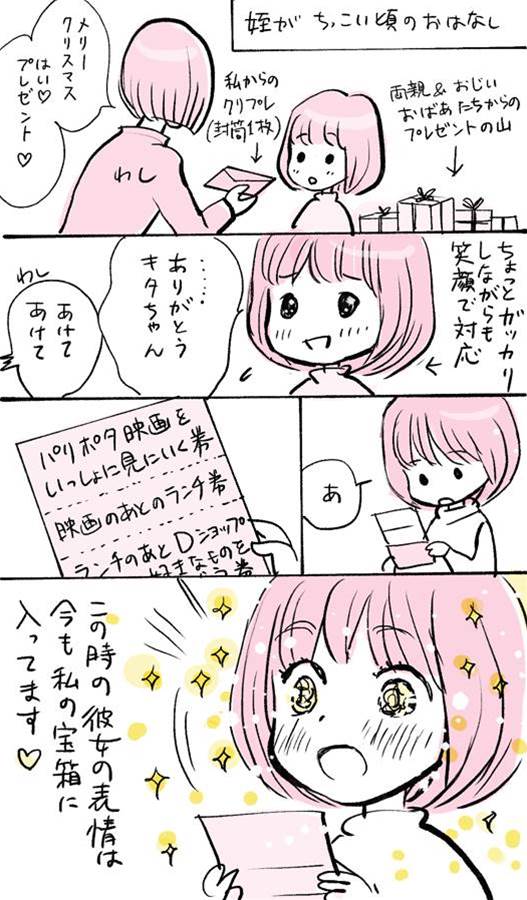 姪が ちっこい頃のおはなし
両親&おじい
おばあたちからの
プレゼントの山
私からの
クリプレ
(封筒1枚)
メリー
クリスマス
はい♡
プレゼント♡
わし
ちょっとガッカリ
しながらも
笑顔で対応
……
ありがとう
キタちゃん
わし
あけて
あけて
あ
パリポタ映画を
いっしょに見にいく券
映画のあとのランチ券
ランチのあとDショップ
好きなものを
券
この時の彼女の表情は
今も私の宝箱に
入ってます♡